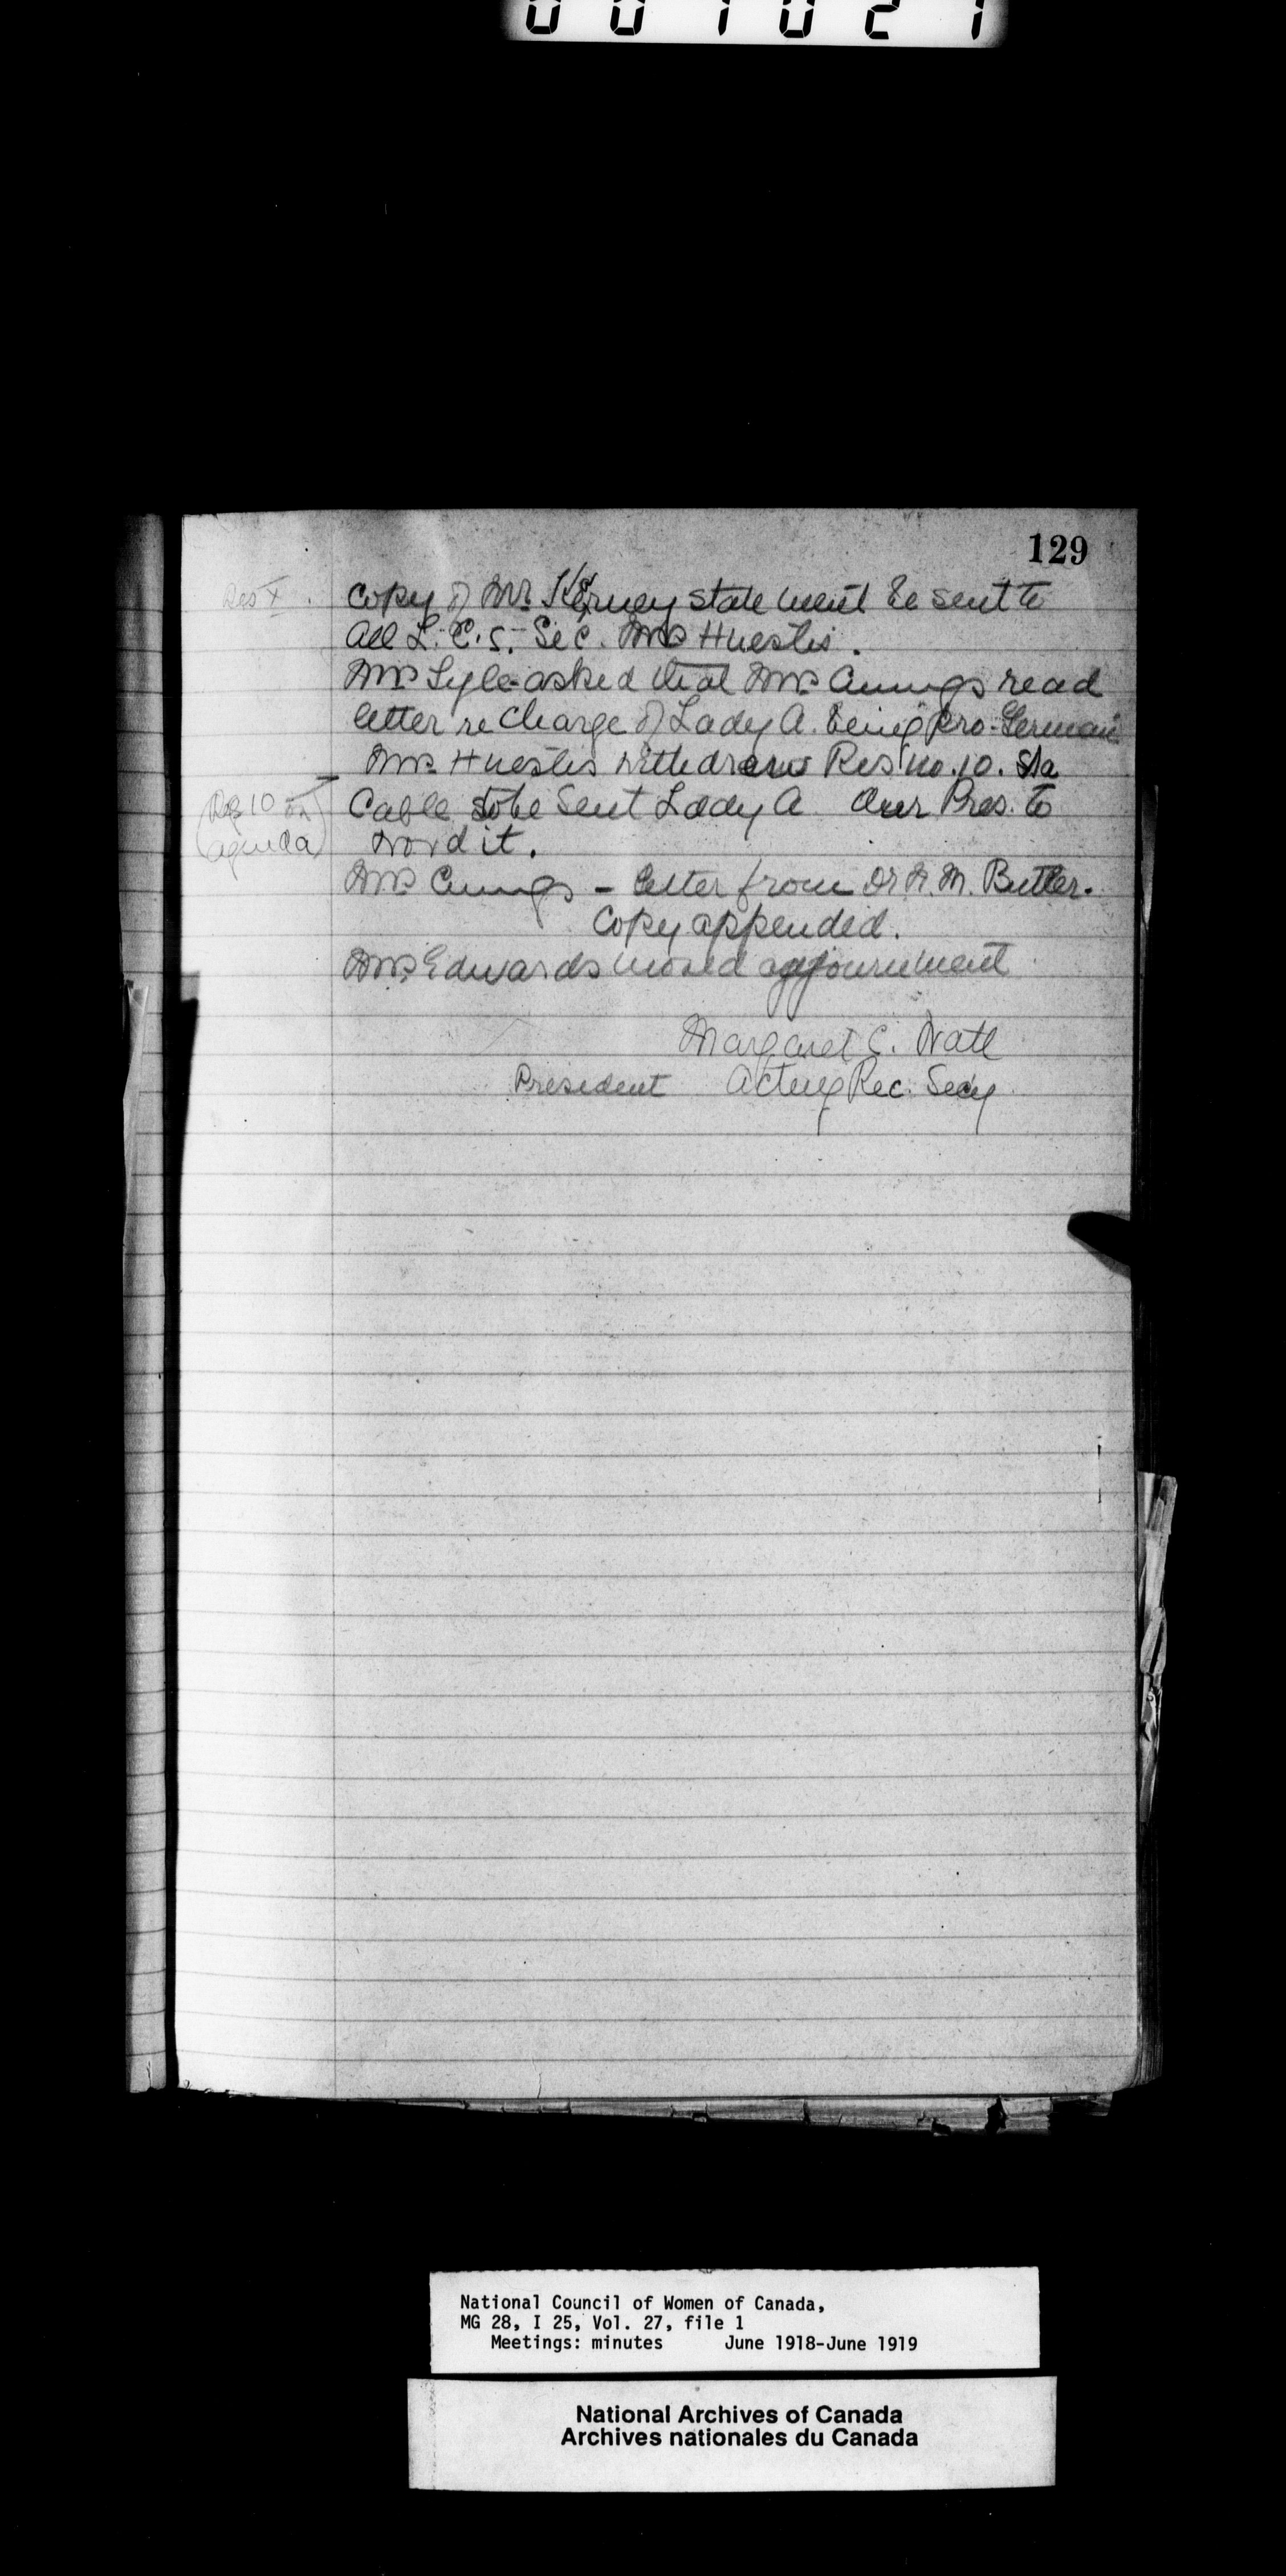 001021
129
Res X. Copy of Mr. Kerney statement be sent to
all L.C.s. Sec. Mrs Huestis.
Mrs Lyle asked that Mrs Cumings read
letter re Charge of Lady A. being Pro-German
Mrs. Huestis withdraws Res no. 10.
(Res 10 on Cable to be sent Lady A Our Pres. to
agenda) word it.
Mrs Cumings - letter from Dr A. M. Butler.
Copy appended.
Mrs. Edwards moved adjournment
Margaret C. Watt
President Acting Rec. Secy
National Council of Women of Canada,
MG 28, I 25, Vol. 27, file 1
Meetings: minutes June 1918-June 1919
National Archives of Canada
Archives nationales du Canada